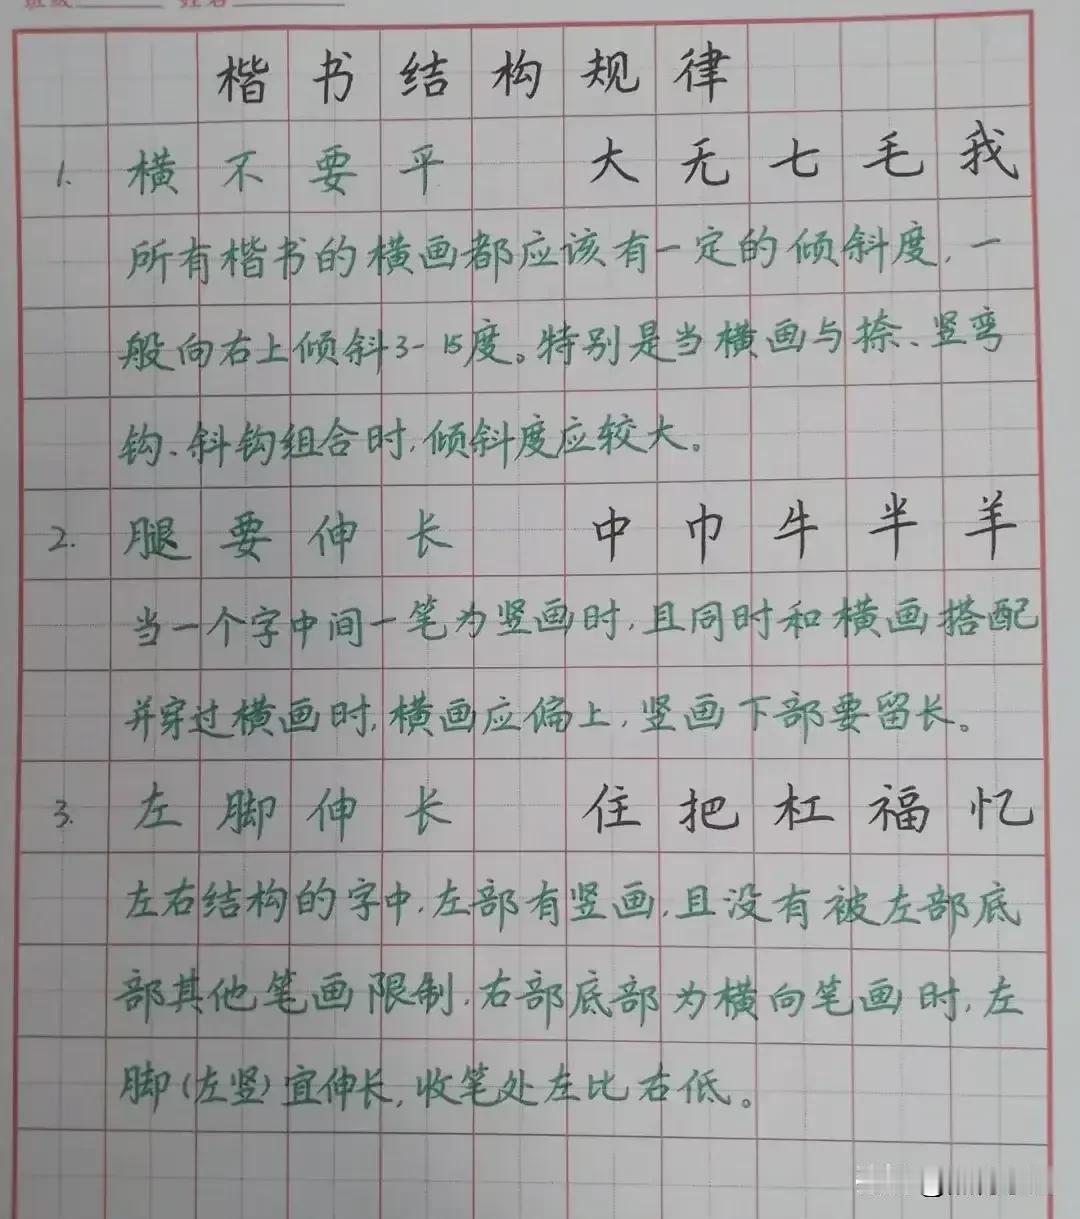 班级 姓名
楷书结构规律
1. 横不要平 大无七毛我
所有楷书的横画都应该有一定的倾斜度,一
般向右上倾斜3-15度。特别是当横画与捺、竖弯
钩、斜钩组合时,倾斜度应较大。
2. 腿要伸长 中巾牛半羊
当一个字中间一笔为竖画时,且同时和横画搭配
并穿过横画时,横画应偏上,竖画下部要留长。
3. 左脚伸长 住把杠福忆
左右结构的字中,左部有竖画,且没有被左部底
部其他笔画限制,右部底部为横向笔画时,左
脚(左竖)宜伸长,收笔处左比右低。